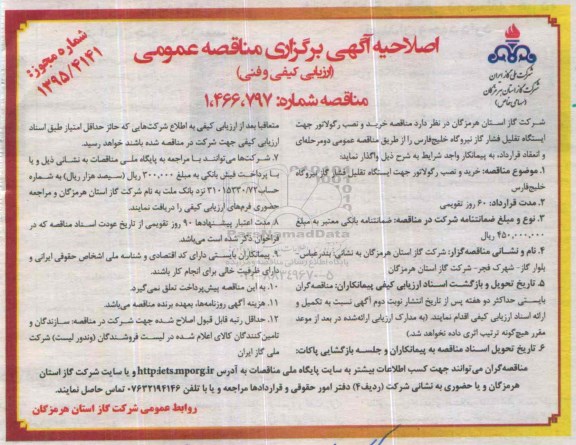 شماره مجوز:
۱۳۹۵/۴۱۴۱
شرکت ملی گاز ایران
شرکت گاز استان هرمزگان
(سهامی خاص)
اصلاحیه آگهی برگزاری مناقصه عمومی
(ارزیابی کیفی وفنی)
مناقصه شماره: ۱.۴۶۶.۷۹۷
شرکت گاز استان هرمزگان در نظر دارد مناقصه خرید و نصب رگولاتور جهت
ایستگاه تقلیل فشار گاز نیروگاه خلیج‌فارس را از طریق مناقصه عمومی دومرحله‌ای
و انعقاد قرارداد، به پیمانکار واجد شرایط به شرح ذیل واگذار نماید:
۱. موضوع مناقصه: خرید و نصب رگولاتور جهت ایستگاه تقلیل فشار گاز نیروگاه
خلیج‌فارس
۲. مدت قرارداد: ۶۰ روز تقویمی
۳. نوع و مبلغ ضمانتنامه شرکت در مناقصه: ضمانتنامه بانکی معتبر به مبلغ
۴۵۰.۰۰۰.۰۰۰ ریال
۴. نام و نشانی مناقصه‌گزار: شرکت گاز استان هرمزگان به نشانی: بندرعباس-
بلوار گاز - شهرک فجر- شرکت گاز استان هرمزگان
۵. تاریخ تحویل و بازگشت اسناد ارزیابی کیفی پیمانکاران: مناقصه‌گران
بایستی حداکثر دو هفته پس از تاریخ انتشار نوبت دوم آگهی نسبت به تکمیل و
ارائه اسناد ارزیابی کیفی اقدام نمایند. (به مدارک ارزیابی ارائه‌شده در بعد از موعد
مقرر هیچ‌گونه ترتیب اثری داده نخواهد شد.)
۶. تاریخ تحویل اسناد مناقصه به پیمانکاران و جلسه بازگشایی پاکات:
متعاقبا بعد از ارزیابی کیفی به اطلاع شرکت‌هایی که حائز حداقل امتیاز طبق اسناد
ارزیابی کیفی جهت شرکت در مناقصه شده باشند خواهد رسید.
۷. شرکت‌ها می‌توانند با مراجعه به پایگاه ملی مناقصات به نشانی ذیل و یا
با پرداخت فیش بانکی به مبلغ ۳۰۰.۰۰۰ ریال (سیصد هزار ریال) به شماره
حساب ۳۱۰۱۵۳۳۰/۷۲ نزد بانک ملت به نام شرکت گاز استان هرمزگان و مراجعه
حضوری فرم‌های ارزیابی کیفی را دریافت نمایند.
۸. مدت اعتبار پیشنهادها ۹۰ روز تقویمی از تاریخ عودت اسناد مناقصه که در
فراخوان ذکر شده است می‌باشد.
۹. پیمانکاران بایستی دارای کد اقتصادی و شناسه ملی اشخاص حقوقی ایرانی و
دارای ظرفیت خالی برای انجام کار باشند.
۱۰. به این مناقصه پیش‌پرداخت تعلق نمی‌گیرد.
۱۱. هزینه آگهی روزنامه‌ها، بعهده برنده مناقصه می‌باشد.
۱۲. حداقل رتبه قابل قبول اصلاح شده جهت شرکت در مناقصه: سازندگان و
تامین‌کنندگان کالای اعلام شده در لیست فروشندگان (وندور لیست) شرکت
ملی گاز ایران
مناقصه‌گران می‌توانند جهت کسب اطلاعات بیشتر به سایت پایگاه ملی مناقصات به آدرس http:iets.mporg.ir و یا سایت شرکت گاز استان
هرمزگان و یا حضوری به نشانی شرکت (ردیف۴) دفتر امور حقوقی و قراردادها مراجعه و یا با تلفن ۰۷۶۳۲۱۹۴۱۴۶ تماس حاصل نمایند.
روابط عمومی شرکت گاز استان هرمزگان